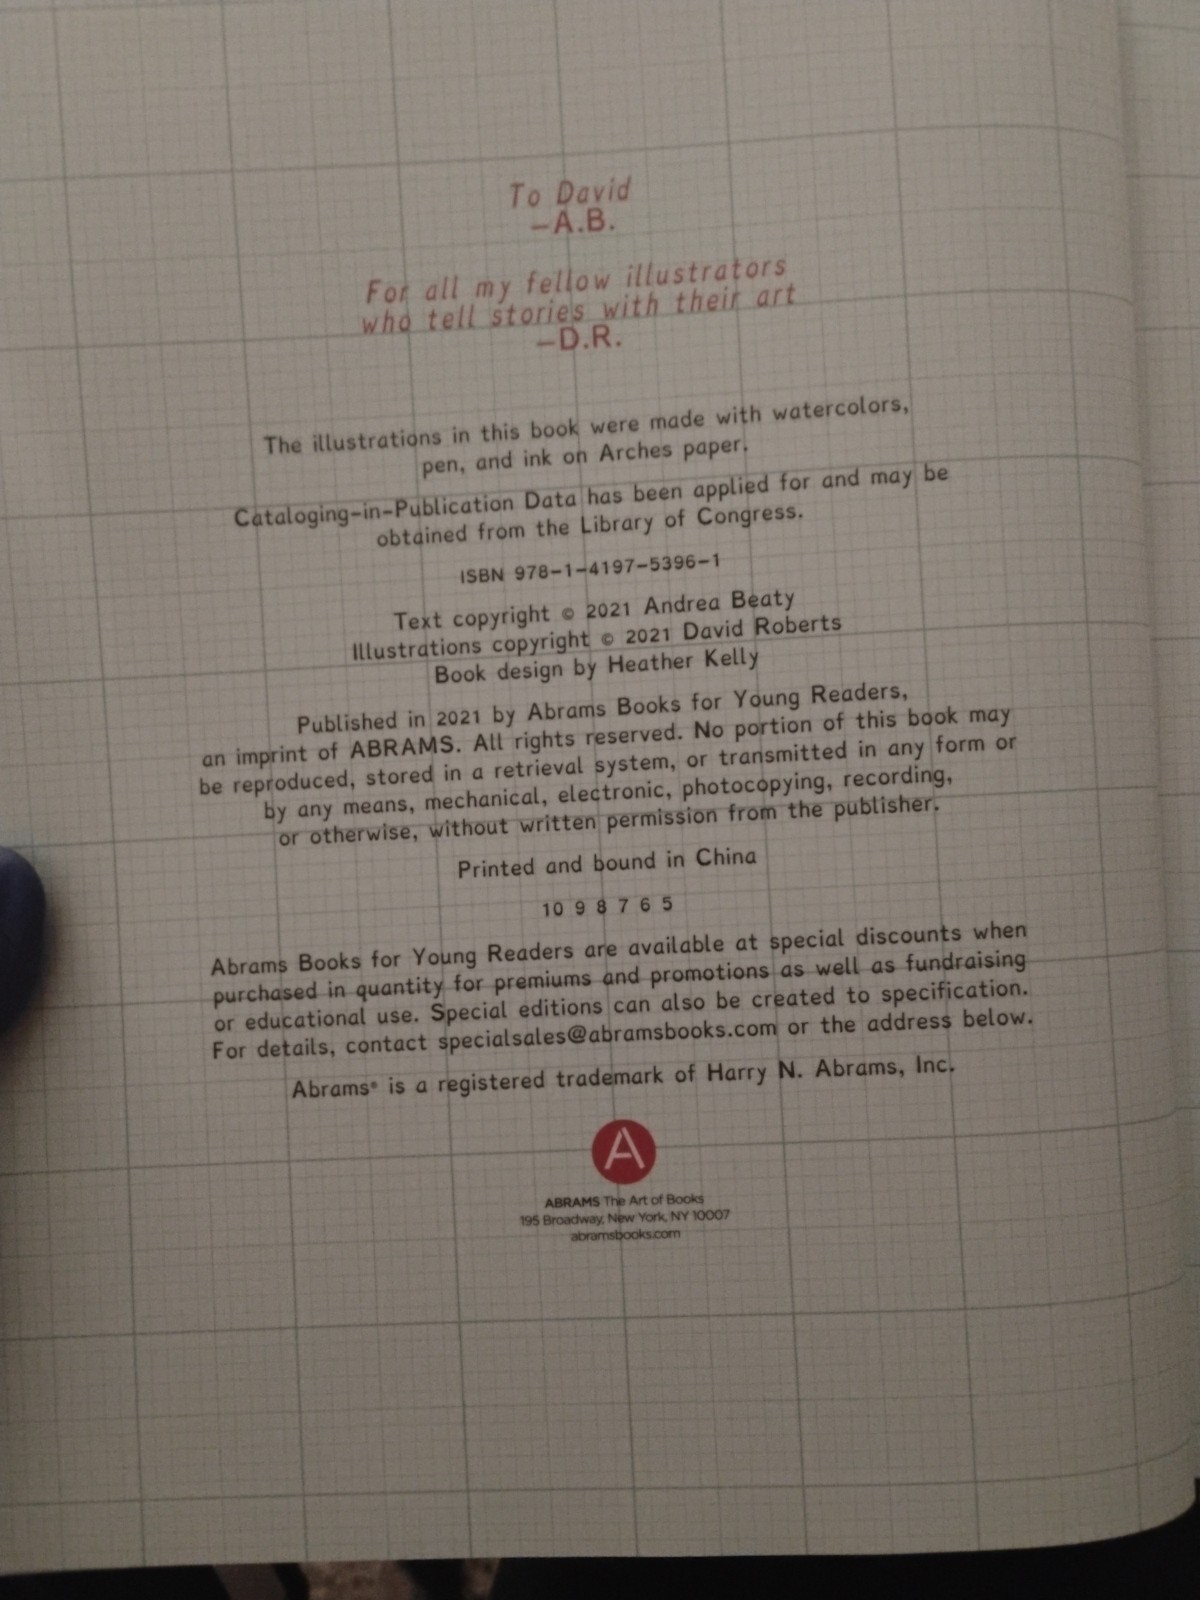 To David
—A.B.
For all my fellow illustrators
who tell stories with their art
—D.R.
The illustrations in this book were made with watercolors,
pen, and ink on Arches paper.
Cataloging-in-Publication Data has been applied for and may be
obtained from the Library of Congress.
ISBN 978-1-4197-5396-1
Text copyright © 2021 Andrea Beaty
Illustrations copyright © 2021 David Roberts
Book design by Heather Kelly
Published in 2021 by Abrams Books for Young Readers,
an imprint of ABRAMS. All rights reserved. No portion of this book may
be reproduced, stored in a retrieval system, or transmitted in any form or
by any means, mechanical, electronic, photocopying, recording,
or otherwise, without written permission from the publisher.
Printed and bound in China
10 9 8 7 6 5
Abrams Books for Young Readers are available at special discounts when
purchased in quantity for premiums and promotions as well as fundraising
or educational use. Special editions can also be created to specification.
For details, contact specialsales@abramsbooks.com or the address below.
Abrams® is a registered trademark of Harry N. Abrams, Inc.
A
ABRAMS The Art of Books
195 Broadway, New York, NY 10007
abramsbooks.com